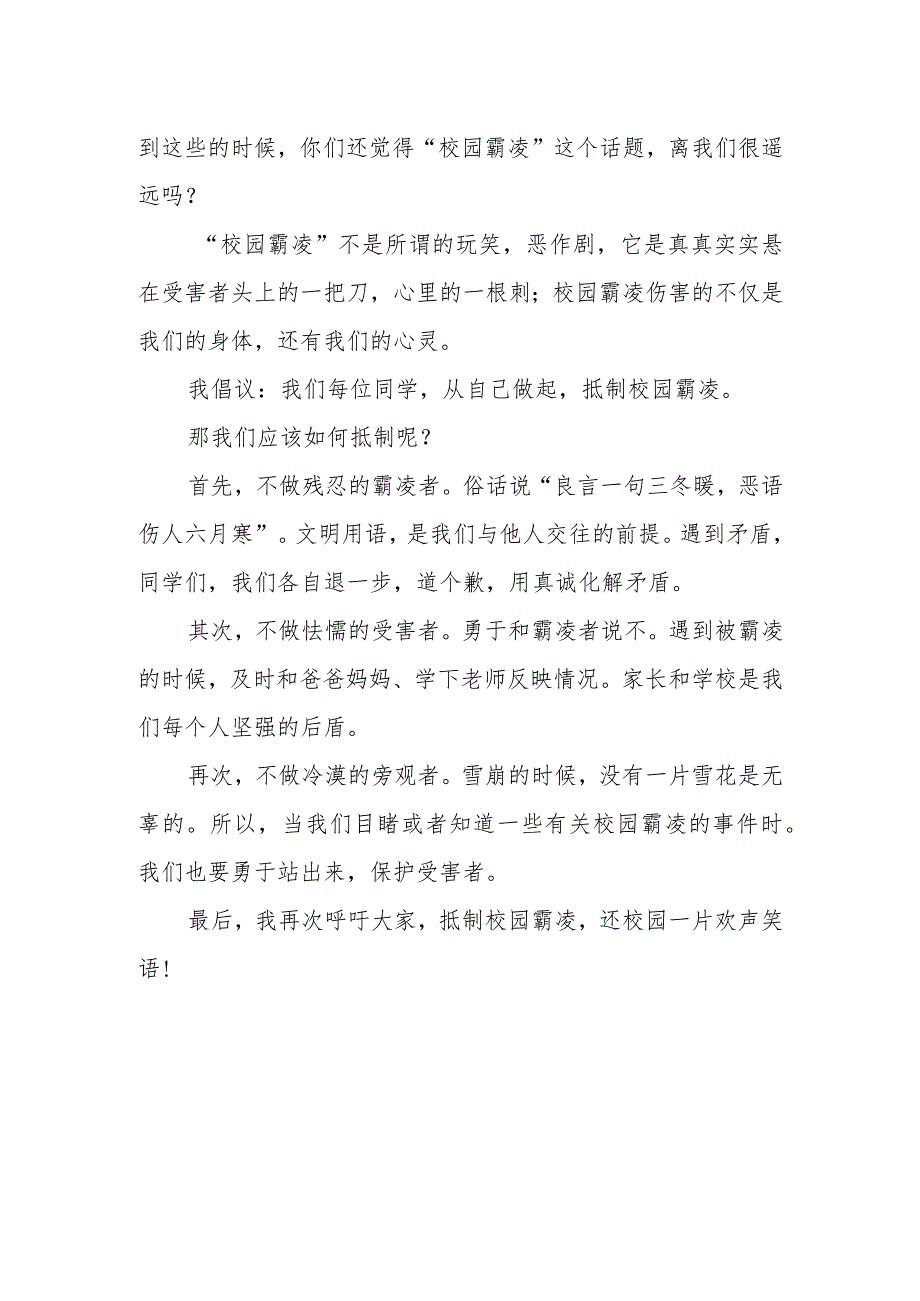 到这些的时候，你们还觉得“校园霸凌”这个话题，离我们很遥
远吗？
“校园霸凌”不是所谓的玩笑，恶作剧，它是真真实实悬
在受害者头上的一把刀，心里的一根刺；校园霸凌伤害的不仅是
我们的身体，还有我们的心灵。
我倡议：我们每位同学，从自己做起，抵制校园霸凌。
那我们应该如何抵制呢？
首先，不做残忍的霸凌者。俗话说“良言一句三冬暖，恶语
伤人六月寒”。文明用语，是我们与他人交往的前提。遇到矛盾，
同学们，我们各自退一步，道个歉，用真诚化解矛盾。
其次，不做怯懦的受害者。勇于和霸凌者说不。遇到被霸凌
的时候，及时和爸爸妈妈、学下老师反映情况。家长和学校是我
们每个人坚强的后盾。
再次，不做冷漠的旁观者。雪崩的时候，没有一片雪花是无
辜的。所以，当我们目睹或者知道一些有关校园霸凌的事件时。
我们也要勇于站出来，保护受害者。
最后，我再次呼吁大家，抵制校园霸凌，还校园一片欢声笑
语！